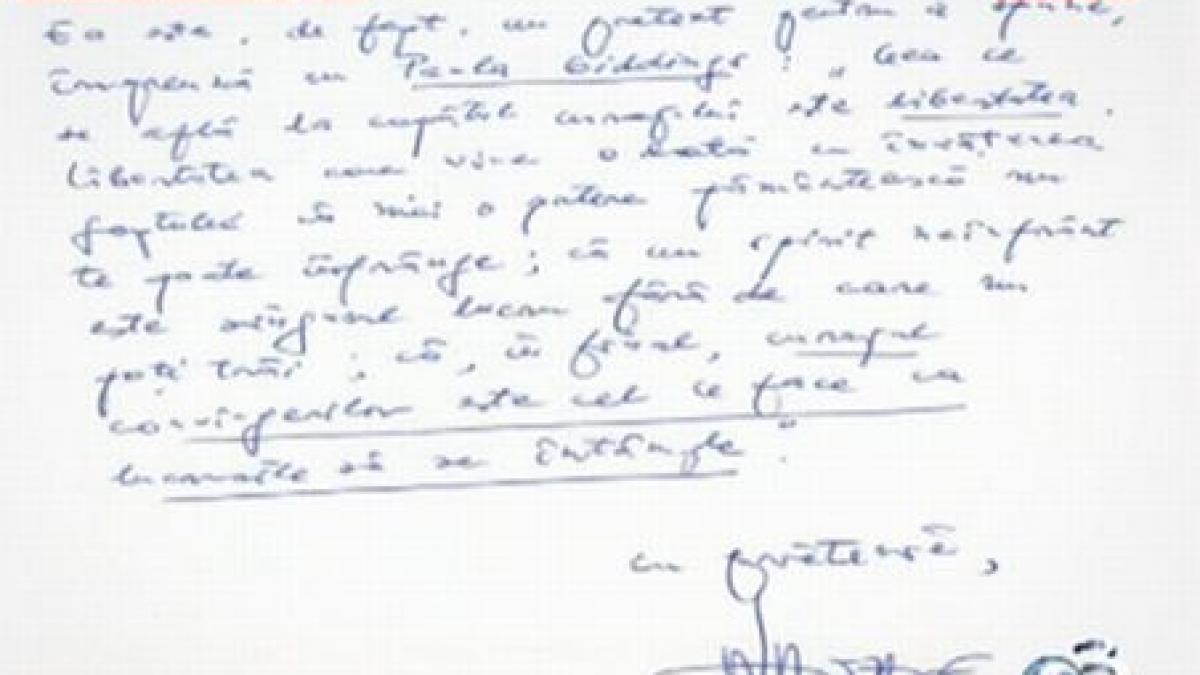 Ea este, de fapt, un pretext pentru a spune,
împreună cu Paula Giddings: „Ceea ce
se află la capătul curajului este libertatea.
Libertatea care vine o dată cu învățarea
faptului că nici o putere pământească nu
te poate înfrânge; că un spirit neînfrânt
este singurul lucru fără de care nu
poți trăi; că, în final, curajul
convingerilor este cel ce face ca
lucrurile să se întâmple".
cu prietenie,